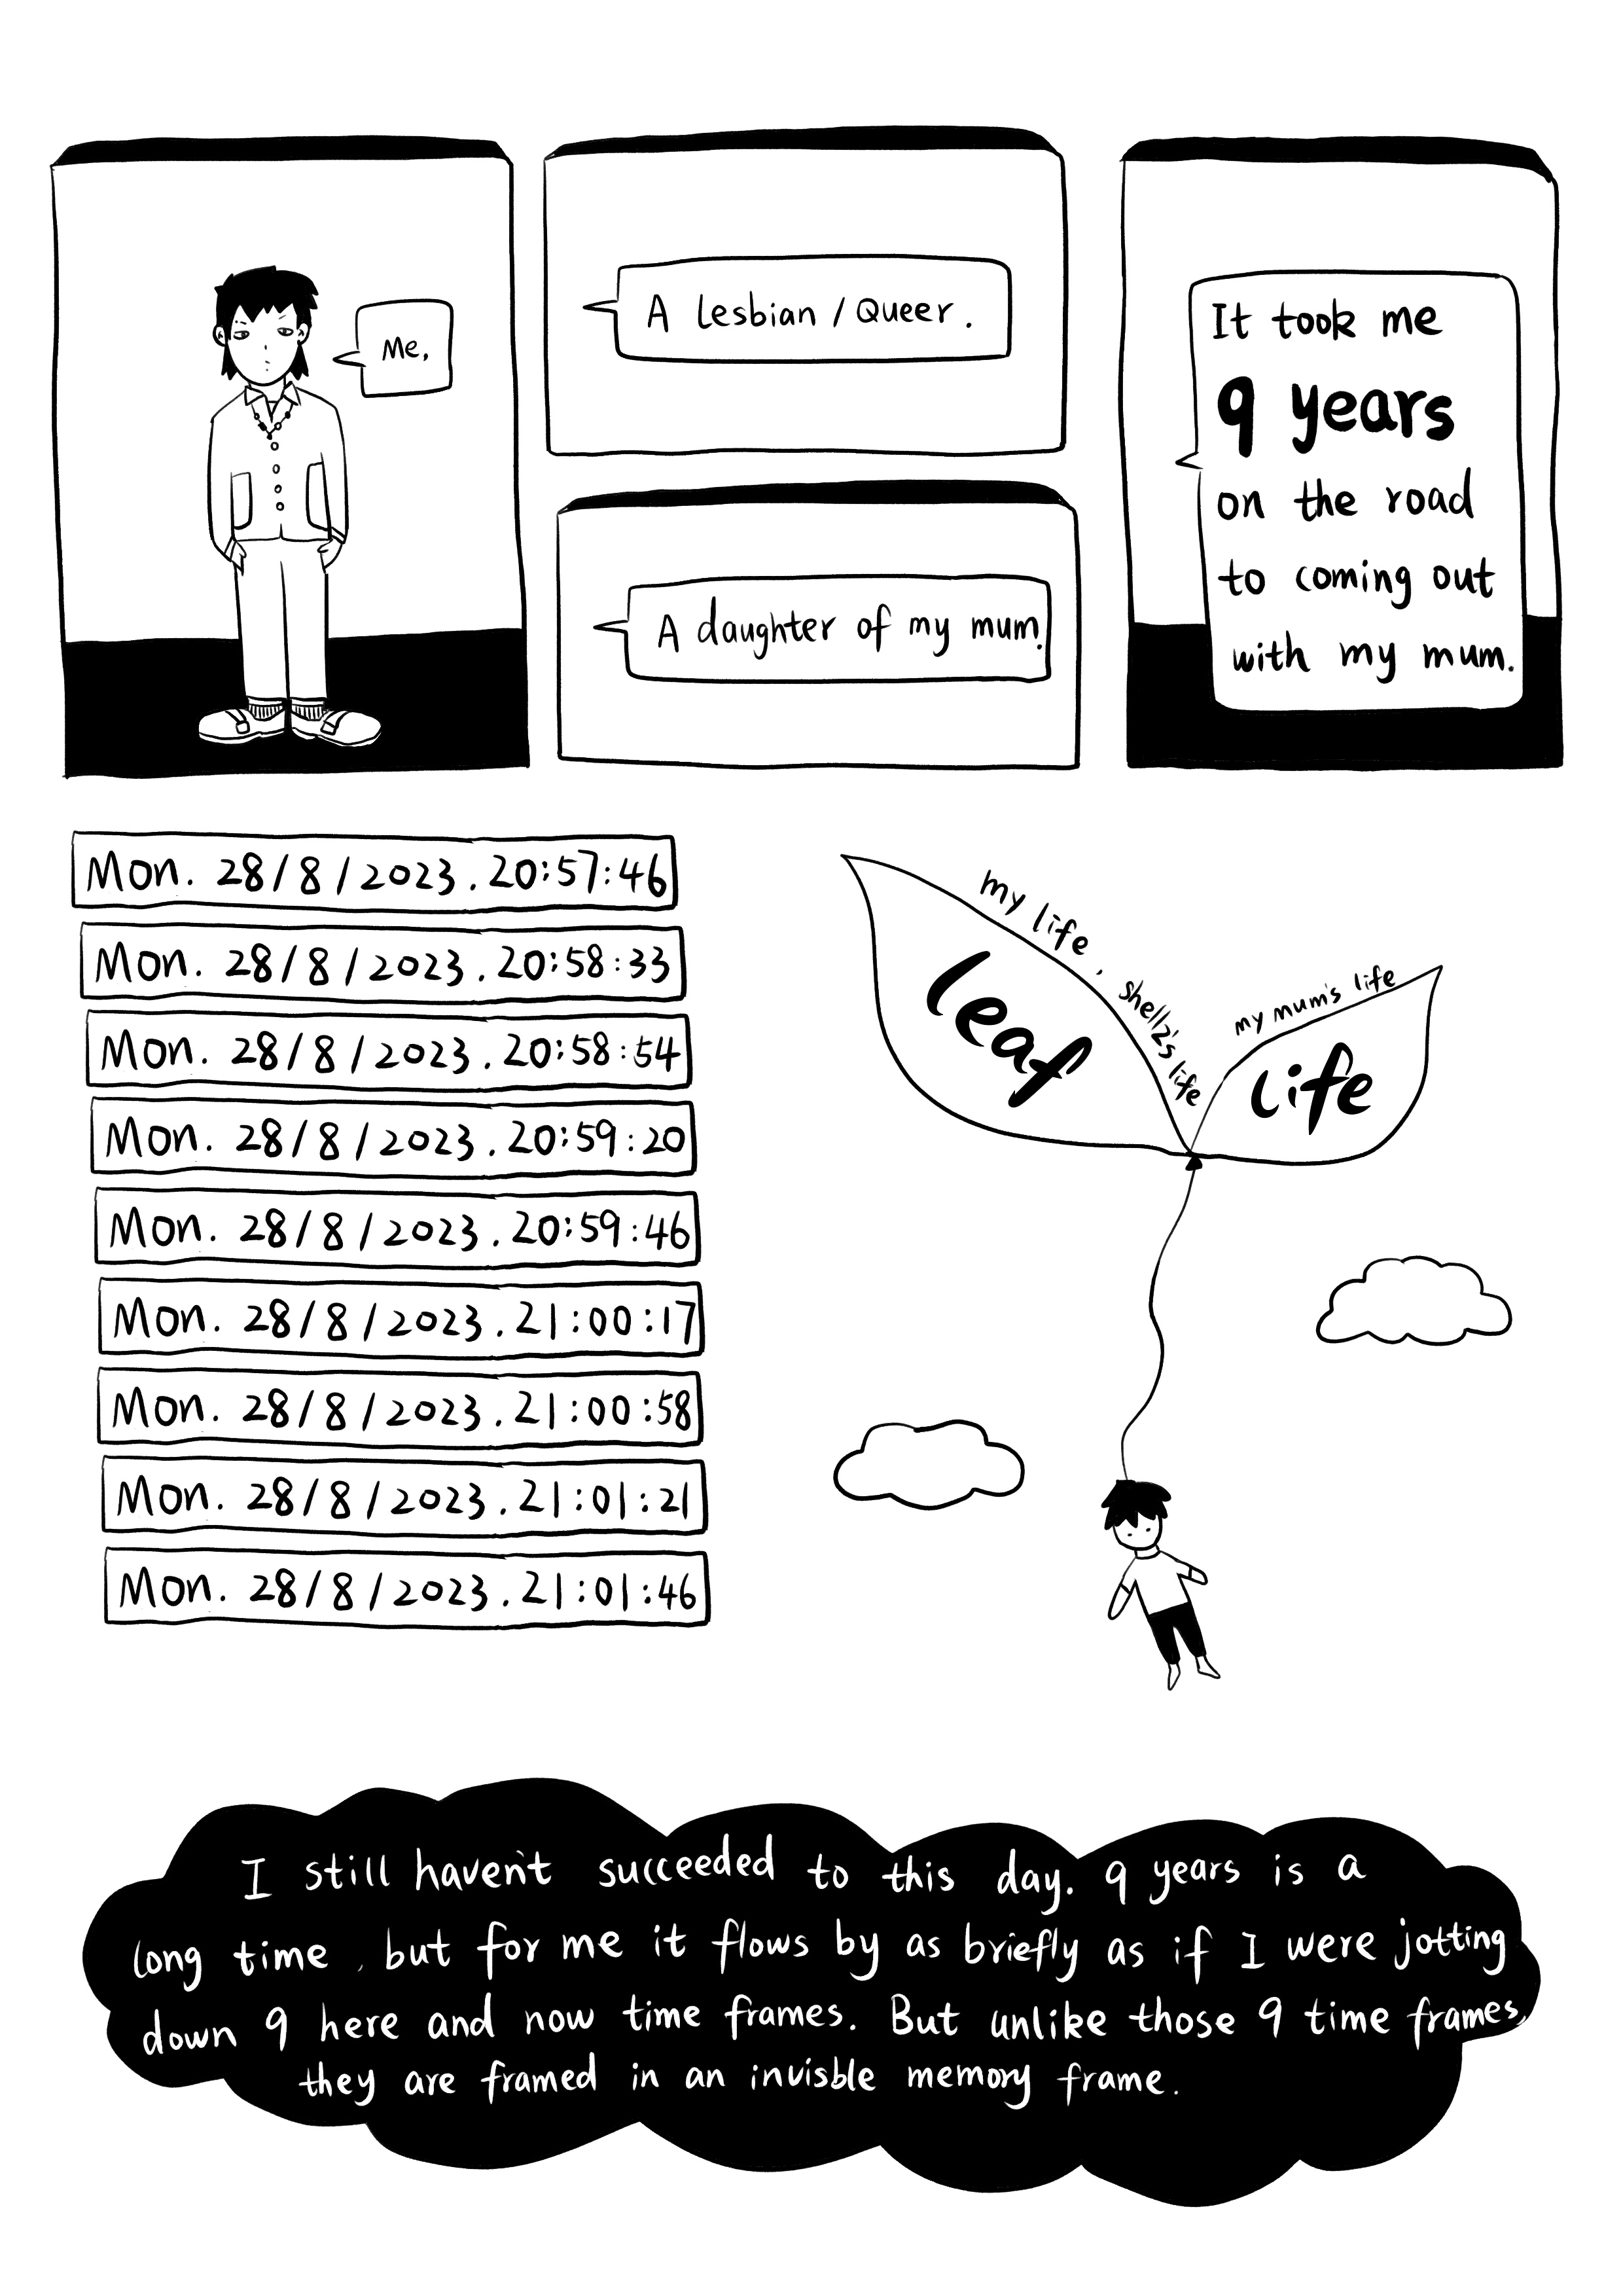 Me,
A Lesbian / Queer.
A daughter of my mum.
It took me
9 years
on the road
to coming out
with my mum.
Mon. 28/8/2023. 20:57:46
Mon. 28/8/2023. 20:58:33
Mon. 28/8/2023. 20:58:54
Mon. 28/8/2023. 20:59:20
Mon. 28/8/2023. 20:59:46
Mon. 28/8/2023. 21:00:17
Mon. 28/8/2023. 21:00:58
Mon. 28/8/2023. 21:01:21
Mon. 28/8/2023. 21:01:46
my life, shellz's life
my mum's life
leaf
life
I still haven't succeeded to this day. 9 years is a
long time, but for me it flows by as briefly as if I were jotting
down 9 here and now time frames. But unlike those 9 time frames,
they are framed in an invisble memory frame.